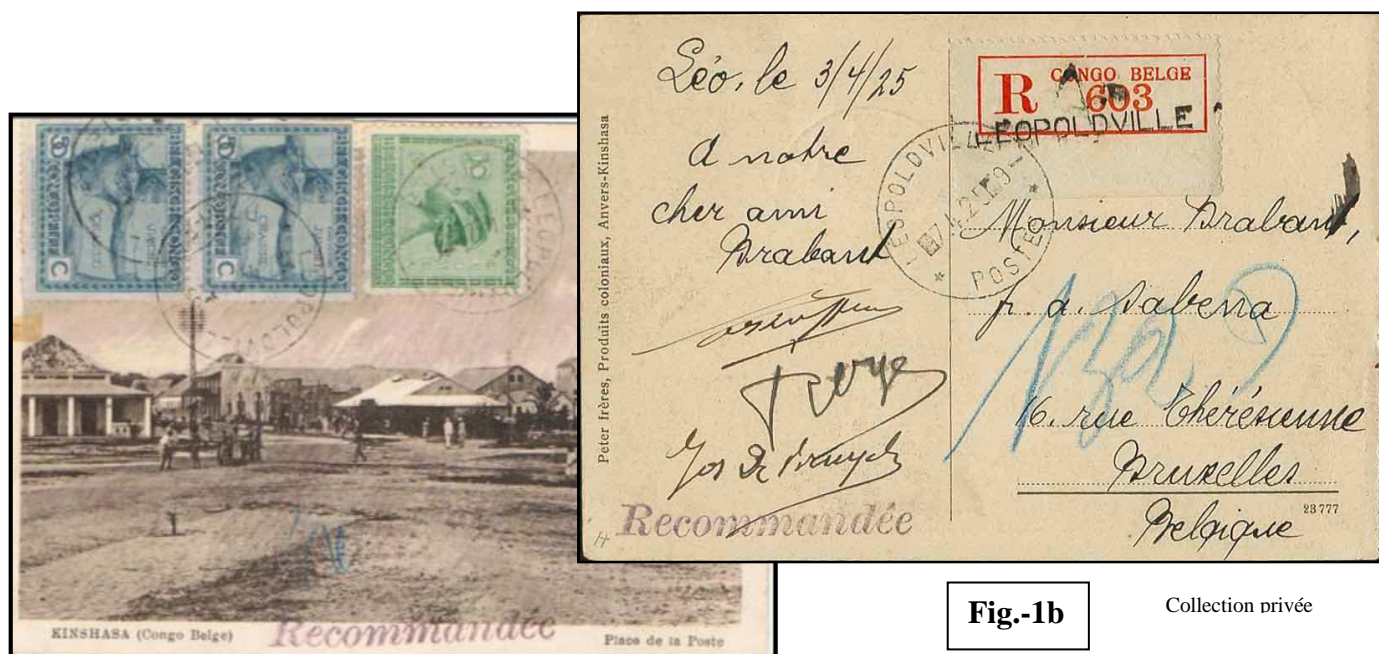 KINSHASA (Congo Belge)
Recommandée
Place de la Poste
Peter frères, Produits coloniaux, Anvers-Kinshasa
Léo, le 3/4/25
A notre
cher ami
Brabant
Jos De Bruycker
Recommandée
R CONGO BELGE
603
LEOPOLDVILLE
LEOPOLDVILLE
POSTE
Monsieur Brabant,
p. a. Sabena
16. rue Thérésienne
Bruxelles
Belgique
23777
Fig.-1b
Collection privée